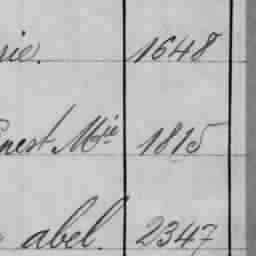 rie. 1648
Ernest Mie 1815
abel. 2347